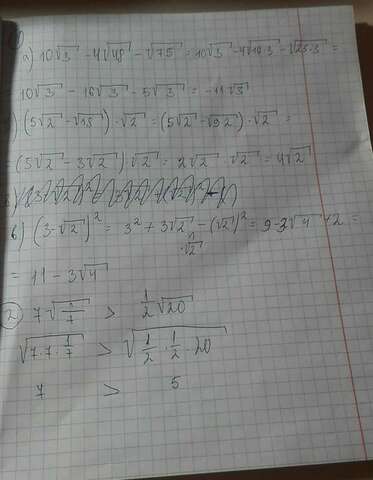 а) 10√3 - 4√48 - √75 = 10√3 - 4√16·3 - √25·3 =
10√3 - 16√3 - 5√3 = -11√3
) (5√2 - √18) · √2 = (5√2 - √9·2) · √2 =
= (5√2 - 3√2) · √2 = 2√2 · √2 = 4√2
в) (3-√2)² = 3² + 3√2 - (√2)² = 9 - 3√4 + 2 =
·√2
= 11 - 3√4
2 7√1/7 > 1/2√20
√7·7·1/7 > √1/2·1/2·20
7 > 5